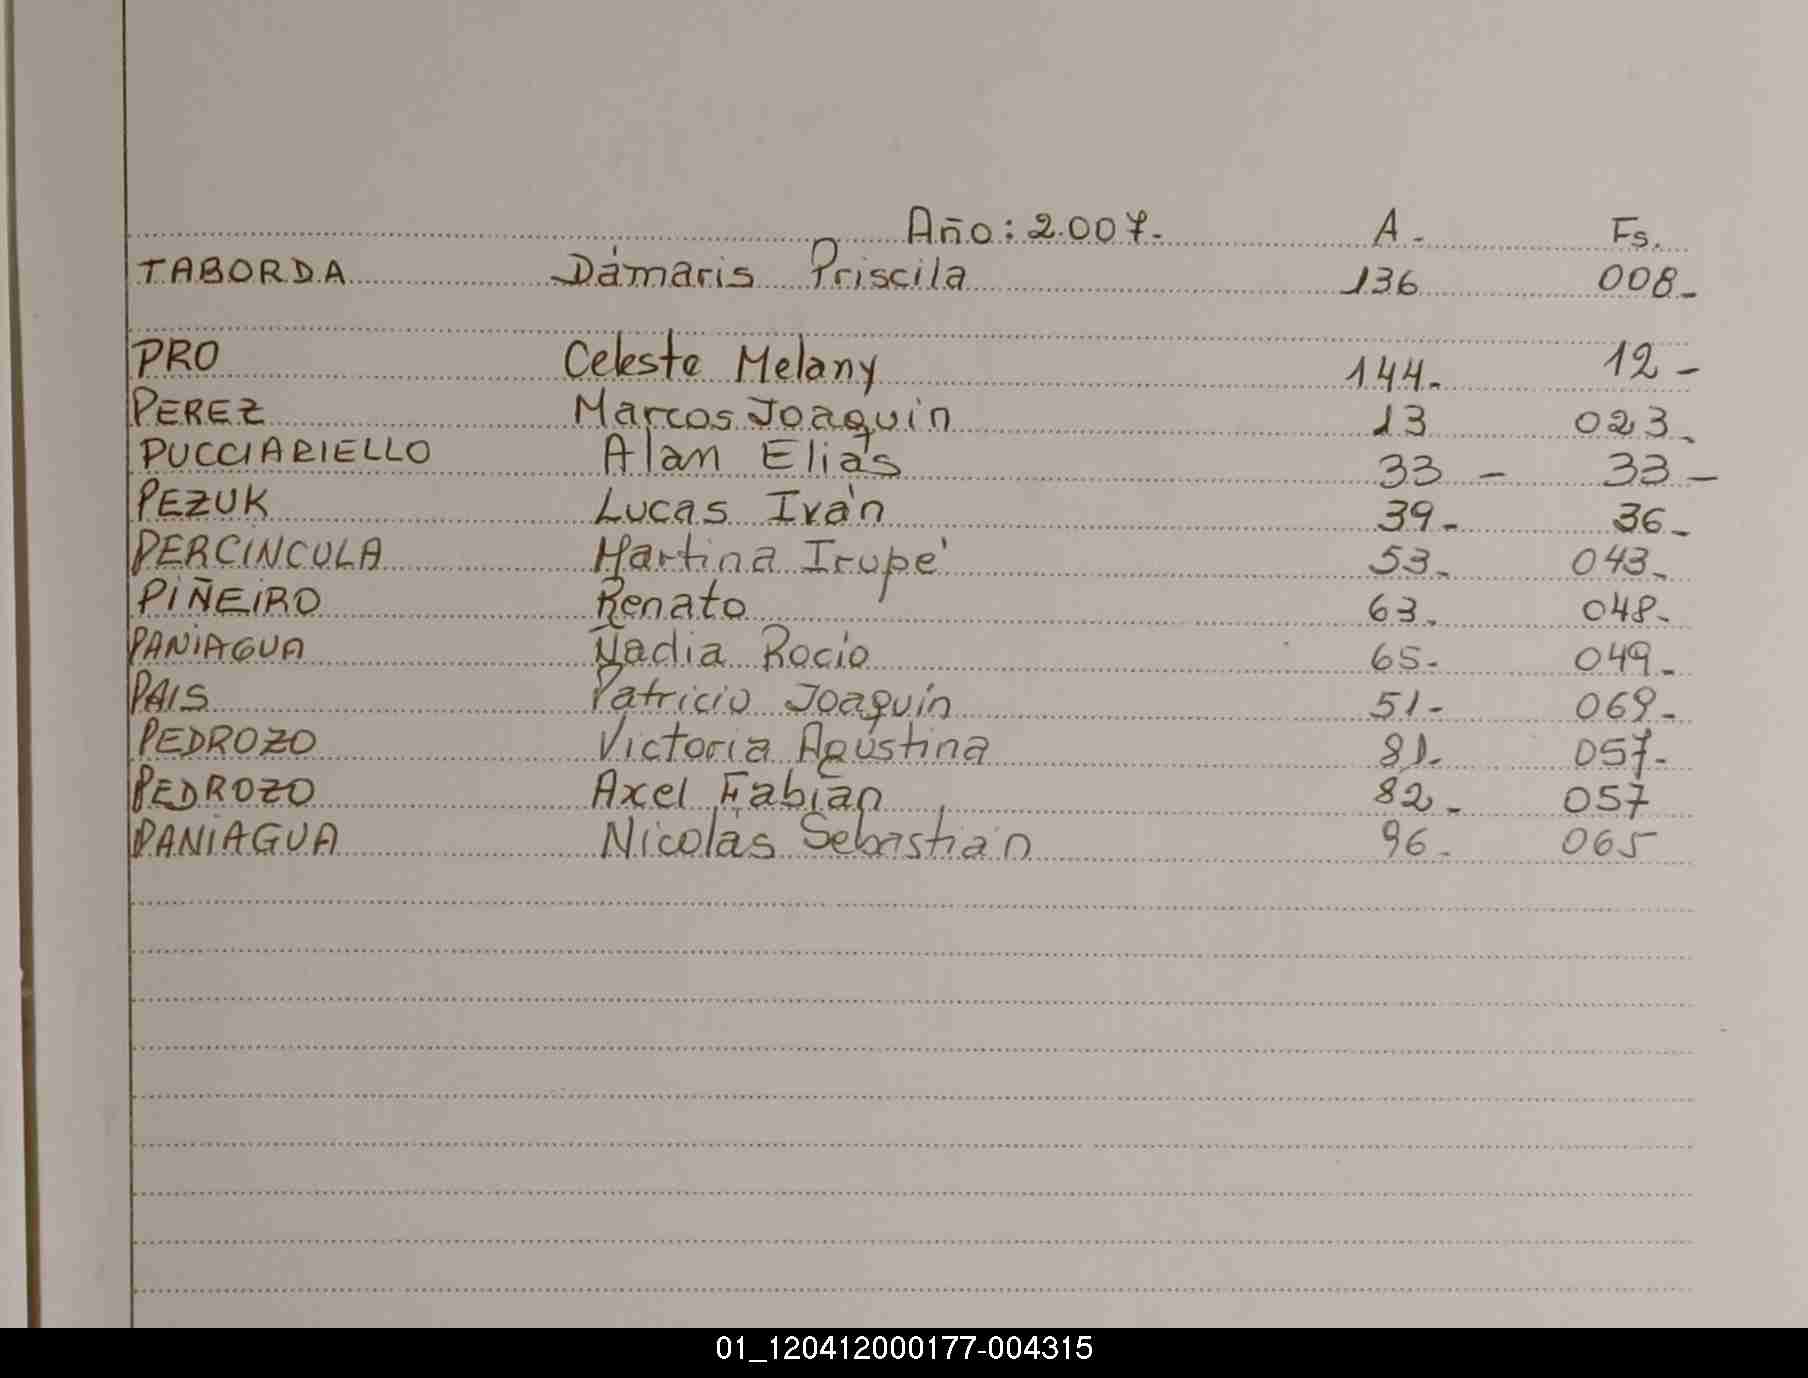 Año: 2.007.- A.- Fs.
TABORDA Dámaris Priscila 136 008-
PRO Celeste Melany 144- 12-
PEREZ Marcos Joaquín 13 023-
PUCCIARIELLO Alan Elías 33- 33-
PEZUK Lucas Iván 39- 36-
PERCINCULA Martina Irupé 53- 043-
PIÑEIRO Renato 63. 048-
PANIAGUA Nadia Rocío 65- 049-
PAIS Patricio Joaquín 51- 069-
PEDROZO Victoria Agustina 81- 057-
PEDROZO Axel Fabián 82- 057
PANIAGUA Nicolás Sebastián 96- 065
01_120412000177-004315